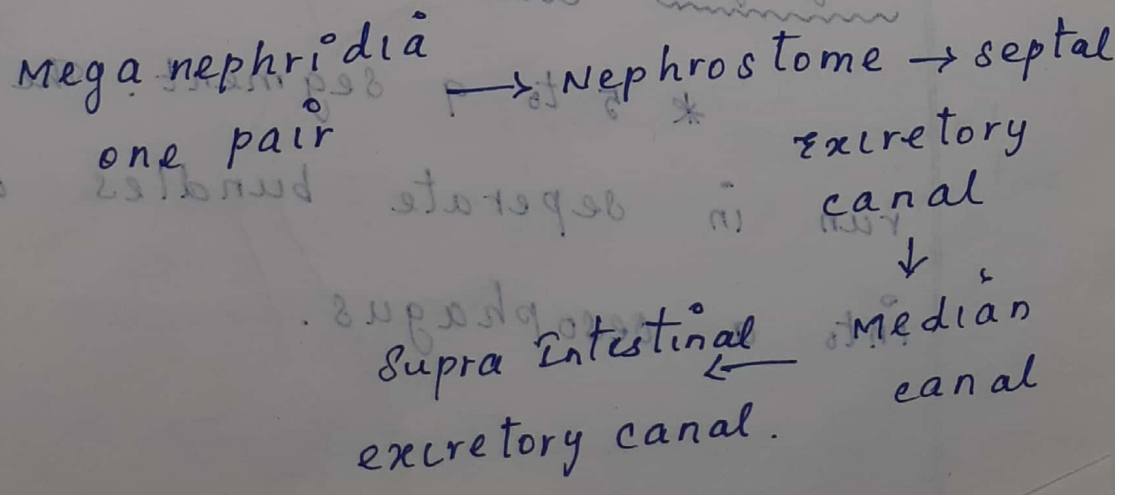 Mega nephridia → Nephrostome → septal
one pair
excretory
canal
↓
Median
canal
← 
Supra Intestinal
excretory canal.